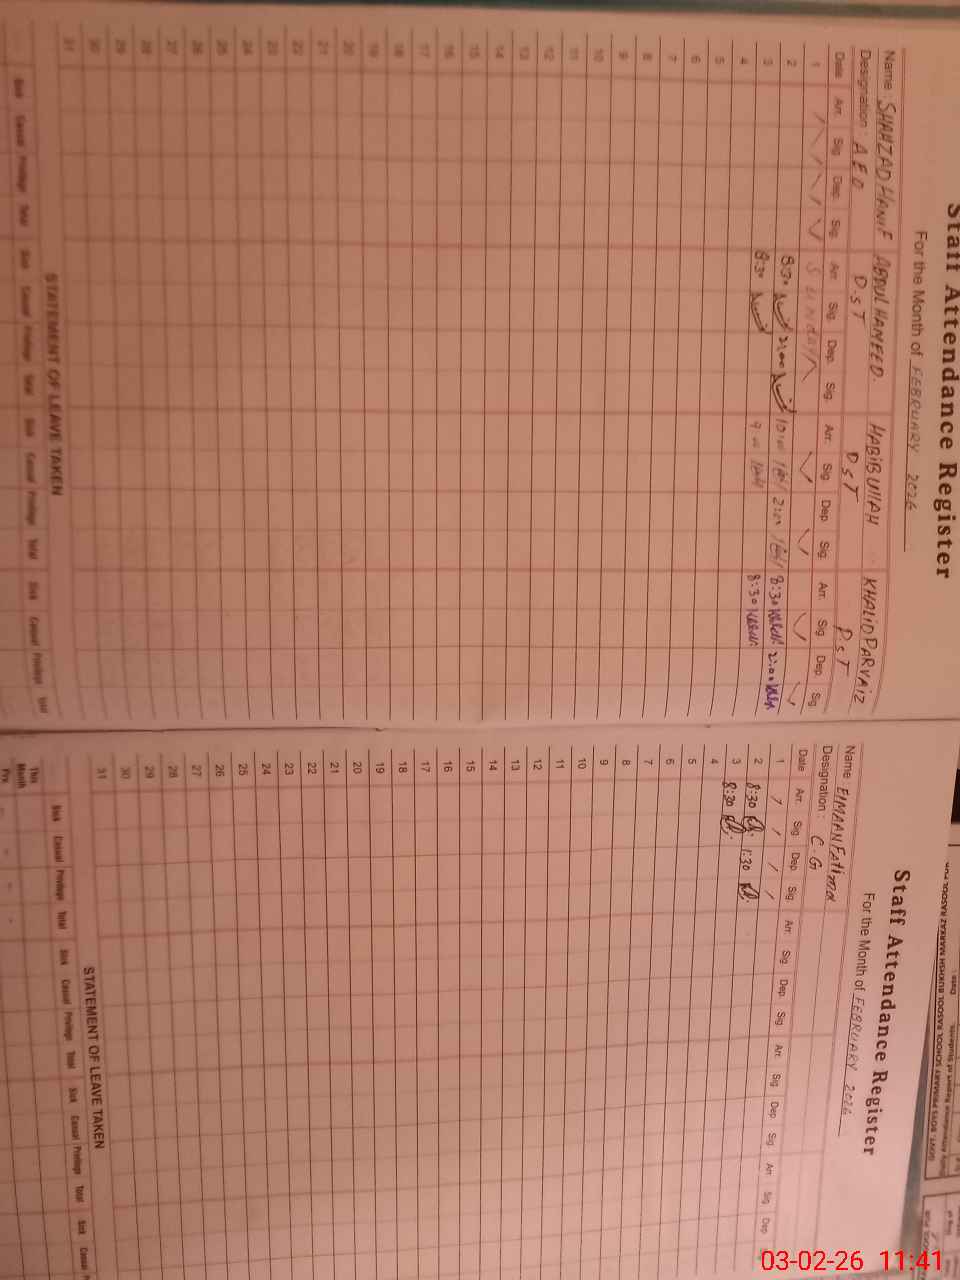 Staff Attendance Register
For the Month of FEBRUARY 2026
Name : SHAHZAD HANIF ABDUL HAMEED. HABIBULLAH KHALID PARVAIZ
Designation : AEO P.ST PST P.ST
Date Arr. Sig Dep. Sig. Arr. Sig. Dep. Sig. Arr. Sig Dep Sig. Arr. Sig Dep Sig
1 Sunday
2 8:30 2:00 10:00 2:00 8:30 2:00
3 8:30 9:00 8:30
4
5
6
7
8
9
10
11
12
13
14
15
16
17
18
19
20
21
22
23
24
25
26
27
28
29
30
31
STATEMENT OF LEAVE TAKEN
Sick Casual Privilege Total Sick Casual Privilege Total Sick Casual Privilege Total Sick Casual Privilege Total
Staff Attendance Register
For the Month of FEBRUARY 2026
Name EIMAAN Fatima
Designation : C.G
Date Arr. Sig Dep Sig Arr. Sig Dep. Sig Arr. Sig Dep Sig Arr Sig Dep
1
2 8:30 1:30
3 8:30
4
5
6
7
8
9
10
11
12
13
14
15
16
17
18
19
20
21
22
23
24
25
26
27
28
29
30
31
STATEMENT OF LEAVE TAKEN
Sick Casual Privilege Total Sick Casual Privilege Total Sick Casual Privilege Total Sick Casual
This Month
Prv.
GOVT. BOYS PRIMARY SCHOOL RASOOL
Date :
03-02-26 11:41